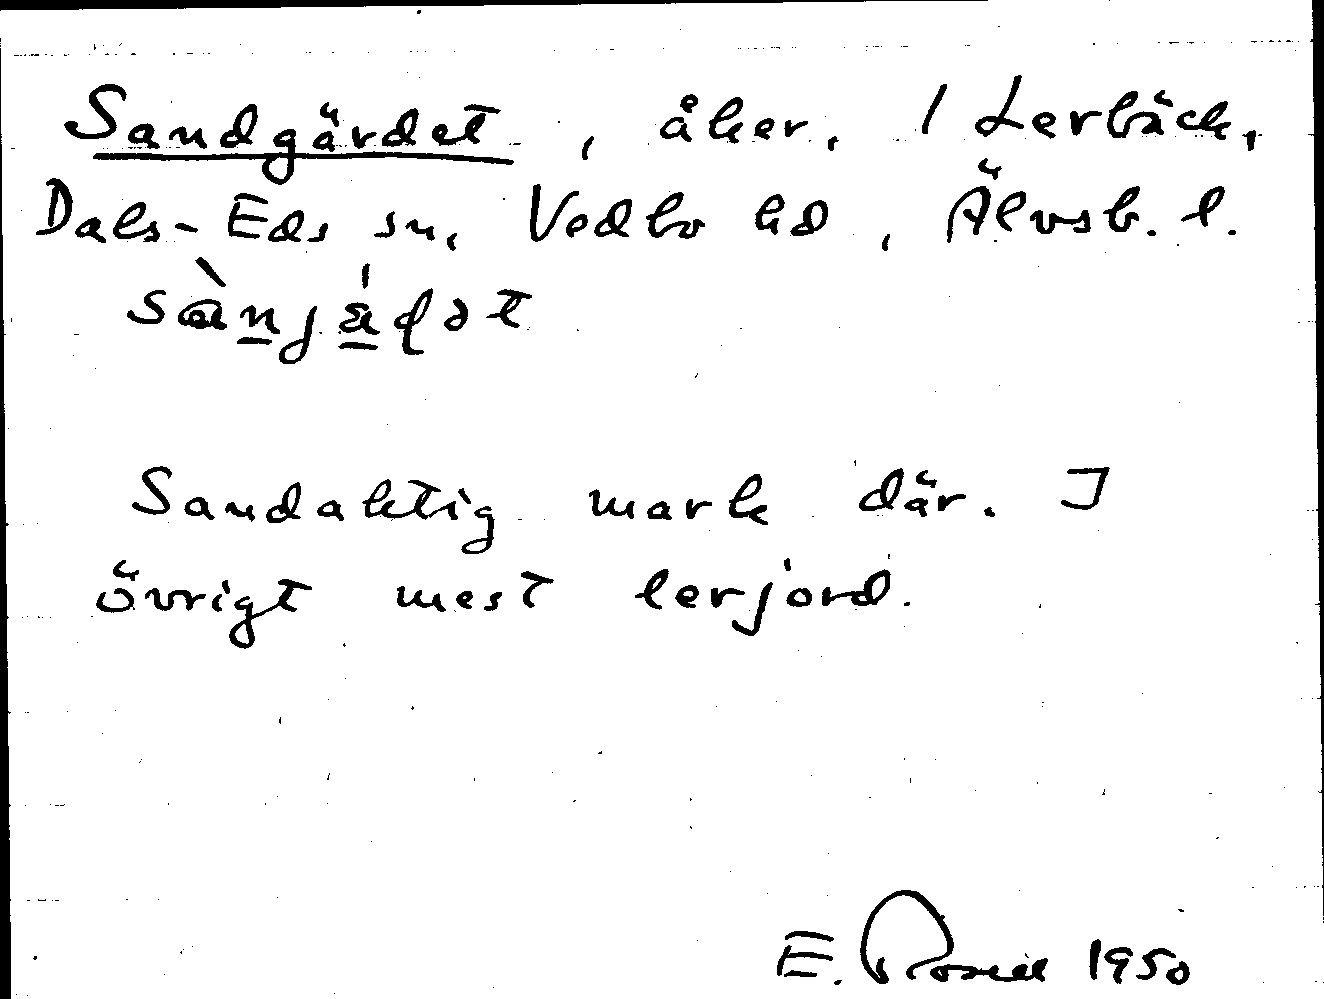 Sandgärdet, åker, 1 Lerbäck,
Dals-Eds sn, Vedbo hd, Älvsb. l.
Sandaktig mark där. I
övrigt mest lerjord.
E. Rosell 1950